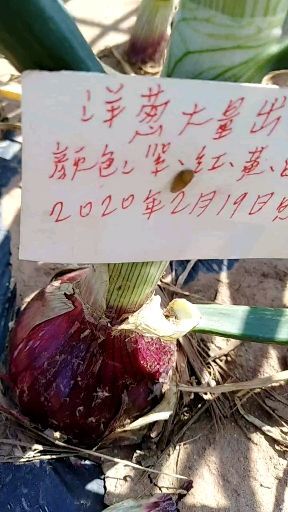 洋葱大量出
顏色: 紫、紅、黃、
2020年2月19日